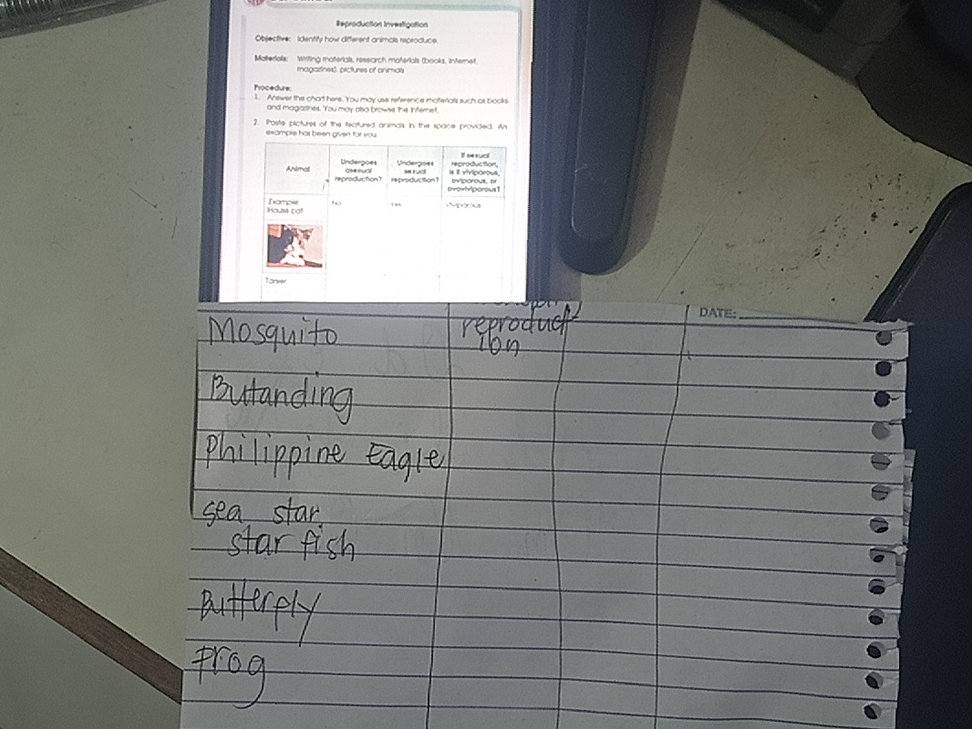 Reproduction Investigation
Objective: Identify how different animals reproduce.
Materials: Writing materials, research materials (books, Internet,
magazines), pictures of animals
Procedure:
1. Answer the chart here. You may use reference materials such as books
and magazines. You may also browse the Internet.
2. Paste pictures of the featured animals in the space provided. An
example has been given for you.
Animal
Undergoes
asexual
reproduction?
Undergoes
sexual
reproduction?
If sexual
reproduction,
is it viviparous,
oviparous, or
ovoviviparous?
Example:
House cat
No
Yes
Viviparous
Tarsier
DATE:
Mosquito
reproduct
ion
Butanding
Philippine Eagle
sea star
star fish
Butterfly
Frog